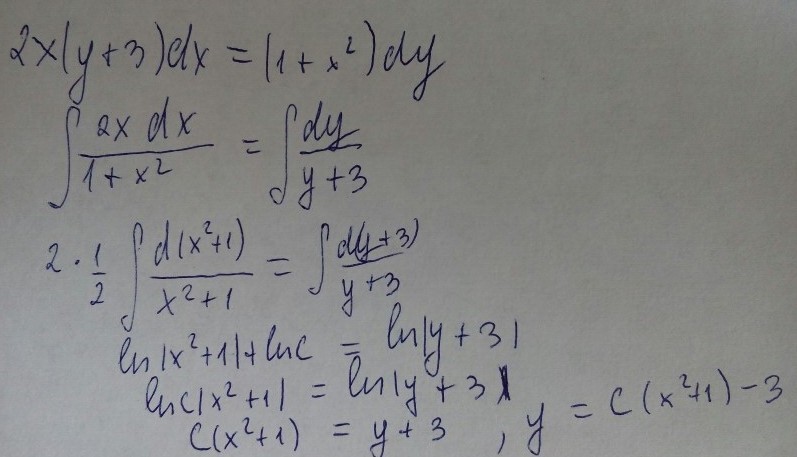 2x(y+3)dx = (1+x²)dy
∫ 2x dx / 1+x² = ∫ dy / y+3
2 · 1/2 ∫ d(x²+1) / x²+1 = ∫ d(y+3) / y+3
ln|x²+1|+lnc = ln|y+3|
lnc|x²+1| = ln|y+3|
c(x²+1) = y+3 , y = c(x²+1)-3